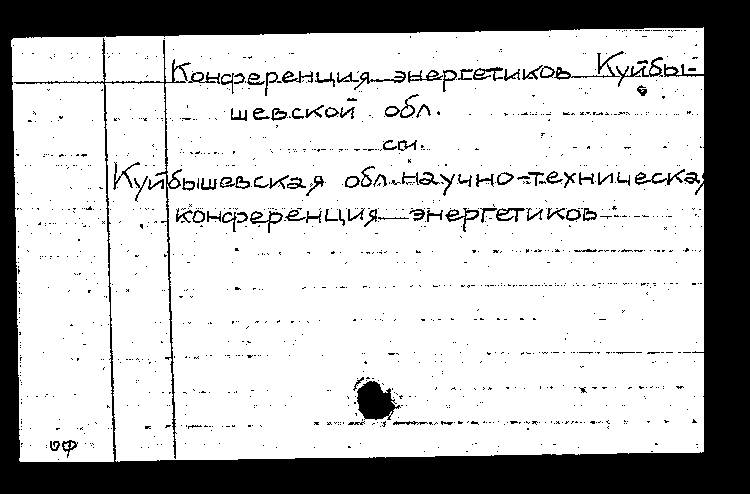 Конференция энергетиков Куйбы-
шевской обл.
см.
Куйбышевская обл. научно-техническая
конференция энергетиков